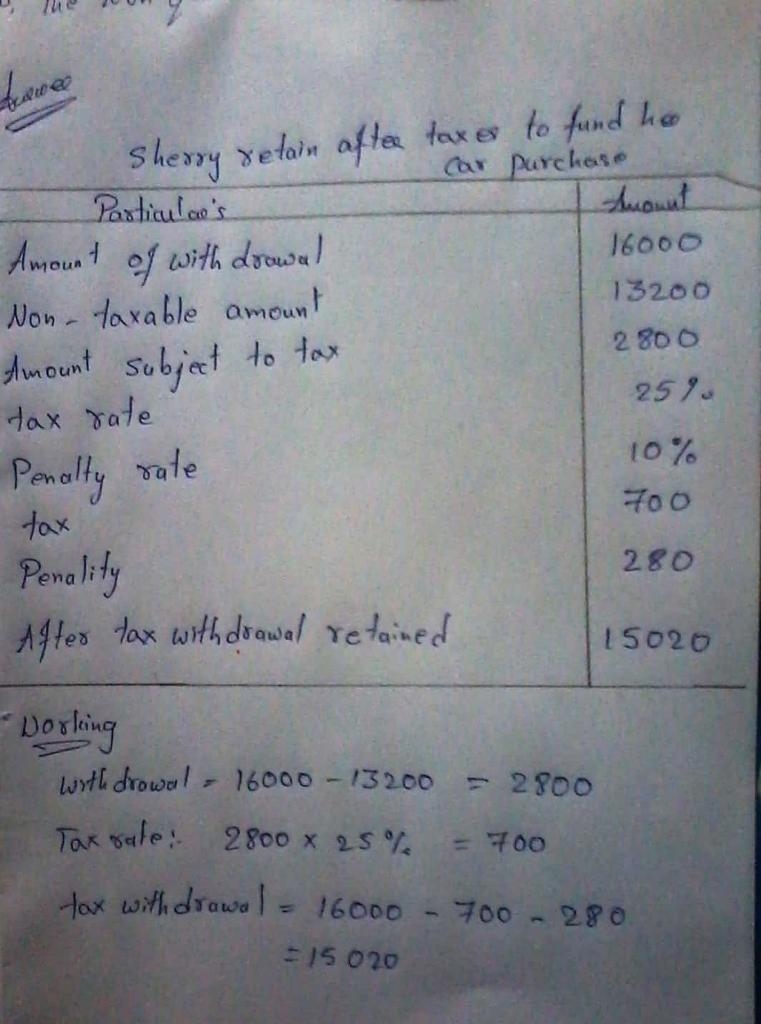 The
Answer
Sherry retain after taxes to fund her
car purchase
Particular's Amount
Amount of withdrawal 16000
Non - taxable amount 13200
Amount subject to tax 2800
tax rate 25%
Penalty rate 10%
tax 700
Penality 280
After tax withdrawal retained 15020
Working
withdrawal = 16000 - 13200 = 2800
Tax rate:- 2800 x 25% = 700
tax withdrawal = 16000 - 700 - 280
= 15020